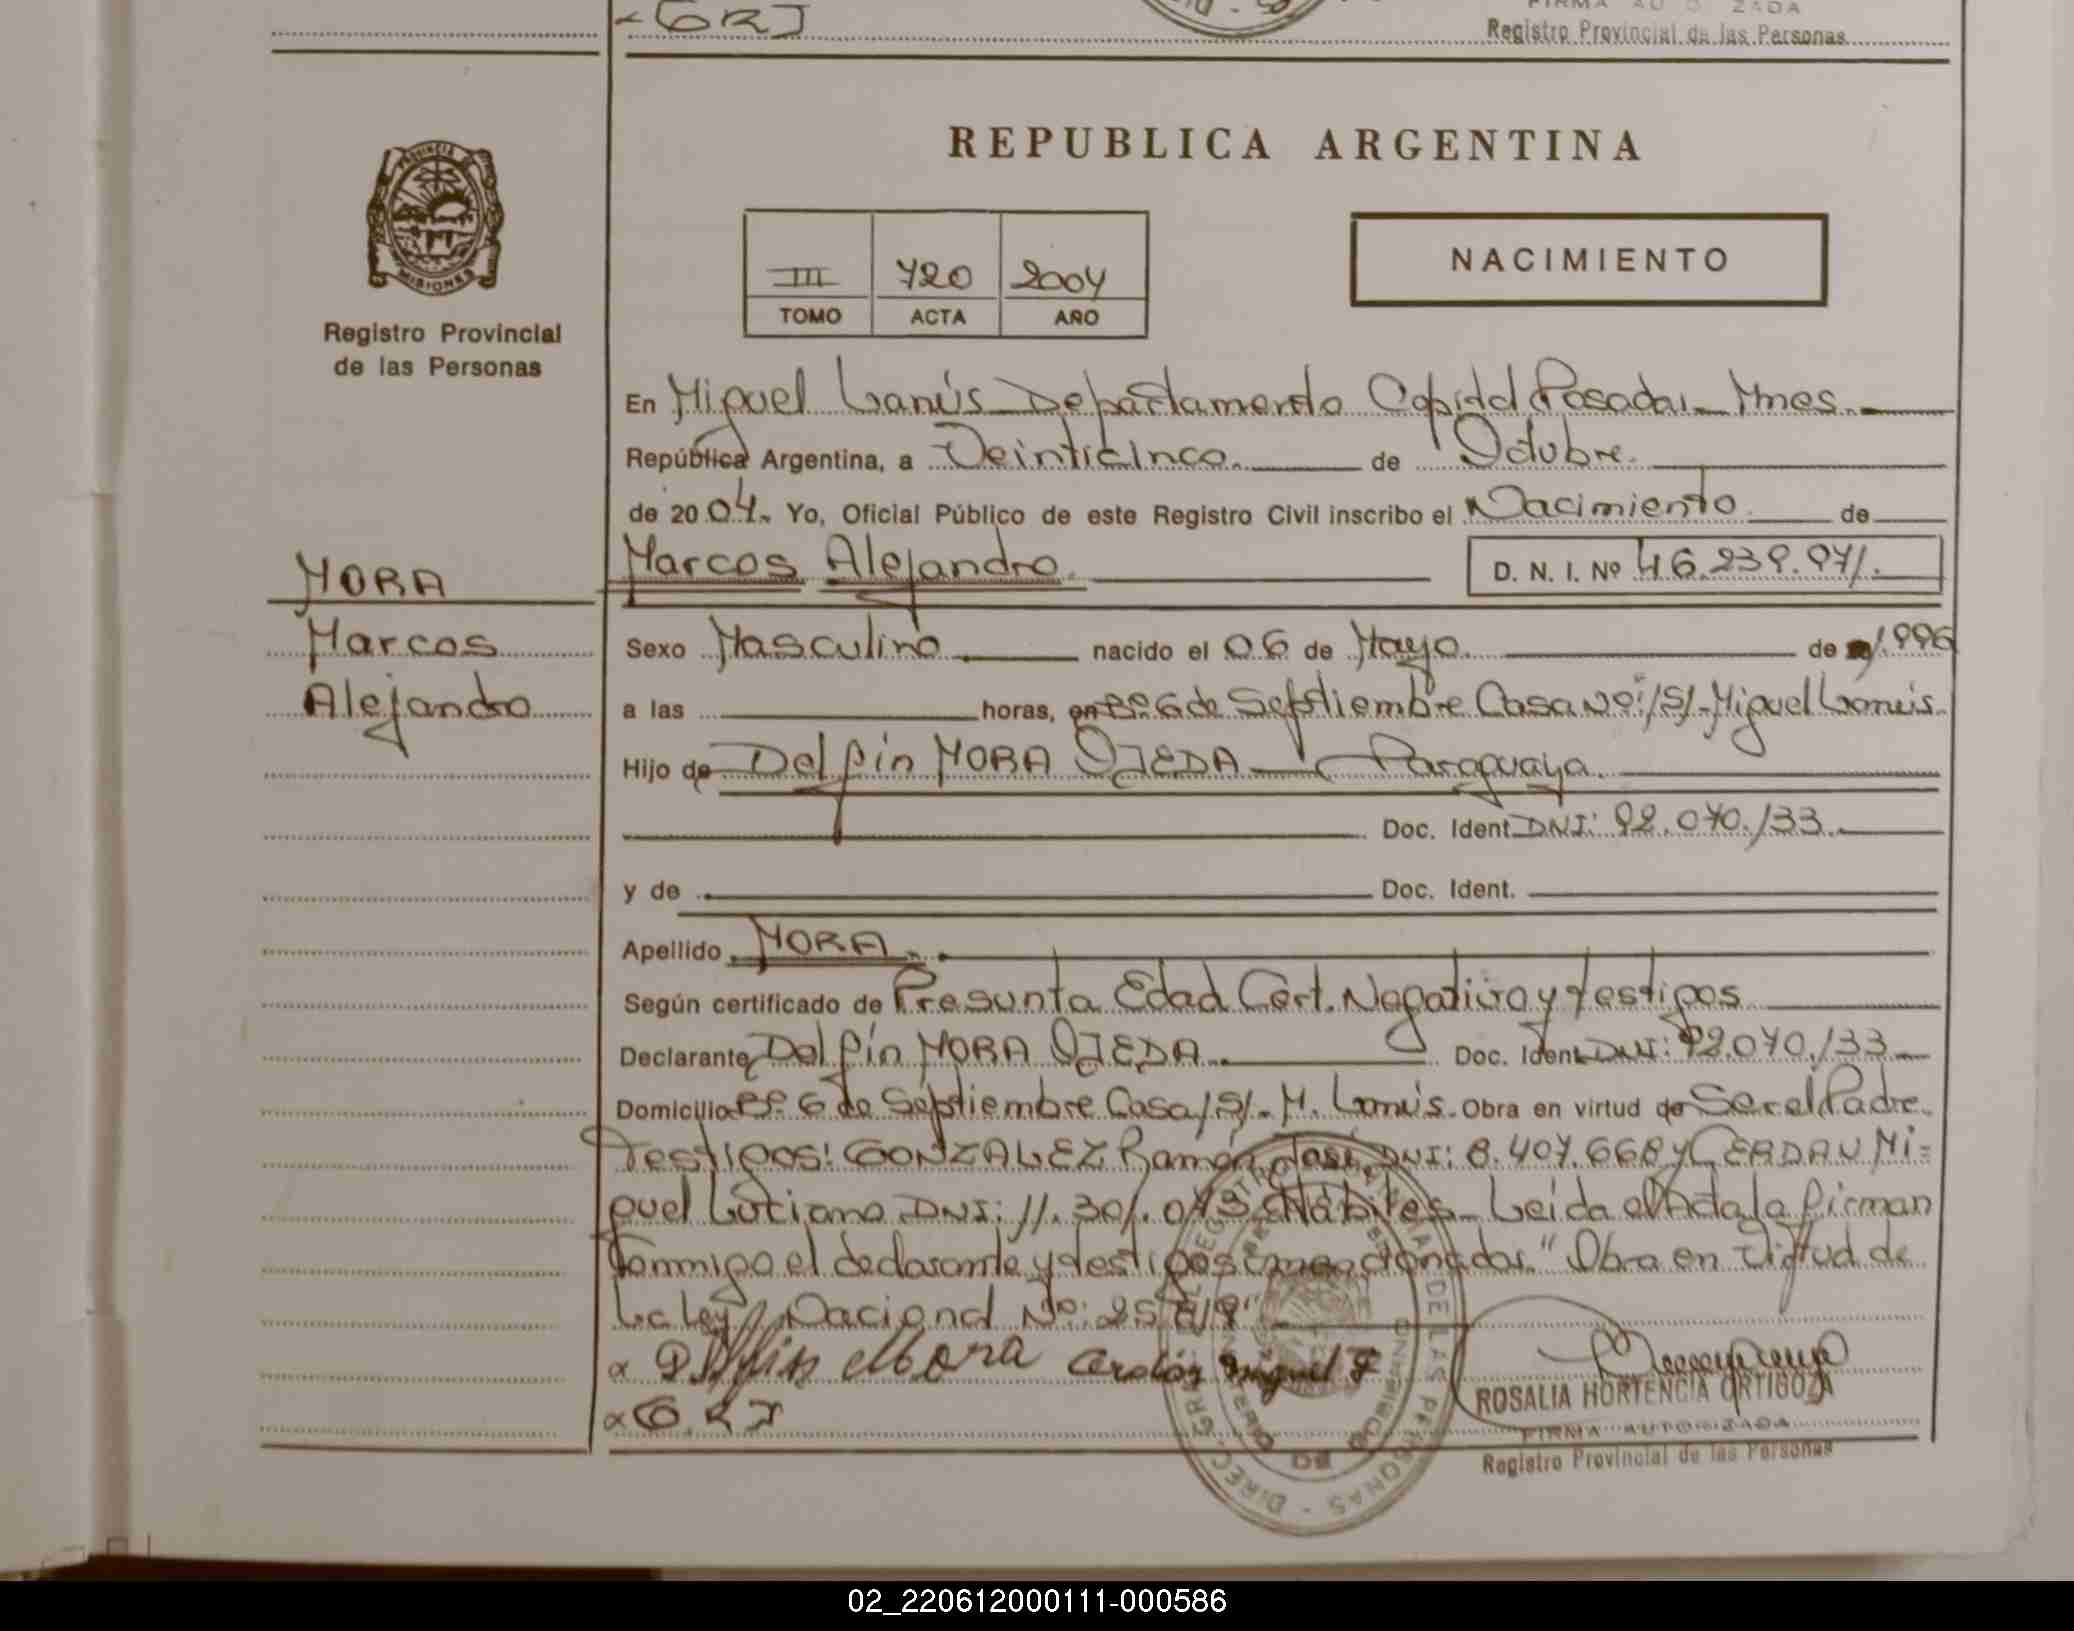 G R J
Registro Provincial de las Personas
PROVINCIA
MISIONES
Registro Provincial
de las Personas
REPUBLICA ARGENTINA
III 720 2004
TOMO ACTA AÑO
NACIMIENTO
En Miguel Lanús Departamento Capital Posadas Mnes.
República Argentina, a Veinticinco de Octubre.
de 2004. Yo, Oficial Público de este Registro Civil inscribo el Nacimiento de
MORA
Marcos
Alejandro
Marcos Alejandro. D. N. I. Nº 46.239.971.
Sexo Masculino nacido el 06 de Mayo. de 1.996
a las horas, en Bº 6 de Septiembre Casa Nº: 151-Miguel Lanús.
Hijo de Delfín MORA OJEDA Paraguaya.
Doc. Ident. DNI: 92.070.133.
y de Doc. Ident.
Apellido MORA.
Según certificado de Presunta Edad Cert. Negativo y testigos
Declarante Delfín MORA OJEDA. Doc. Ident. DNI: 92.070.133
Domicilio Bº 6 de Septiembre Casa 151-M. Lanús. Obra en virtud de Ser el Padre.
Testigos: GONZALEZ Ramón José DNI: 8.407.668 y CERDAN Mi=
guel DNI: 11.301. Hábiles-Leída el Acta la firman
Conmigo el declarante y testigos mencionados." Obra en virtud de
La Ley Nacional Nº: 25819"
Delfin Mora Miguel
G. R J
ROSALIA HORTENCIA ORTIGOZA
FIRMA AUTORIZADA
Registro Provincial de las Personas
02_220612000111-000586